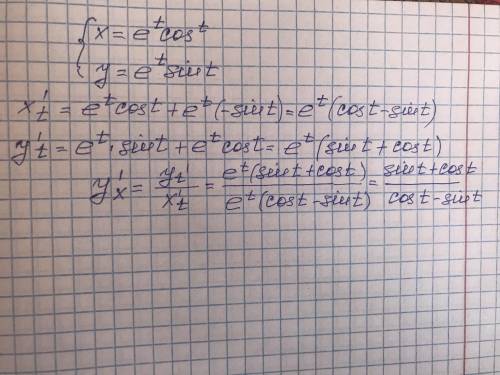 { x = e^t cos^t
y = e^t sin t
x'_t = e^t cos t + e^t (-sin t) = e^t (cos t - sin t)
y'_t = e^t · sin t + e^t cos t = e^t (sin t + cos t)
y'_x = y'_t / x'_t = e^t (sin t + cos t) / e^t (cos t - sin t) = sin t + cos t / cos t - sin t